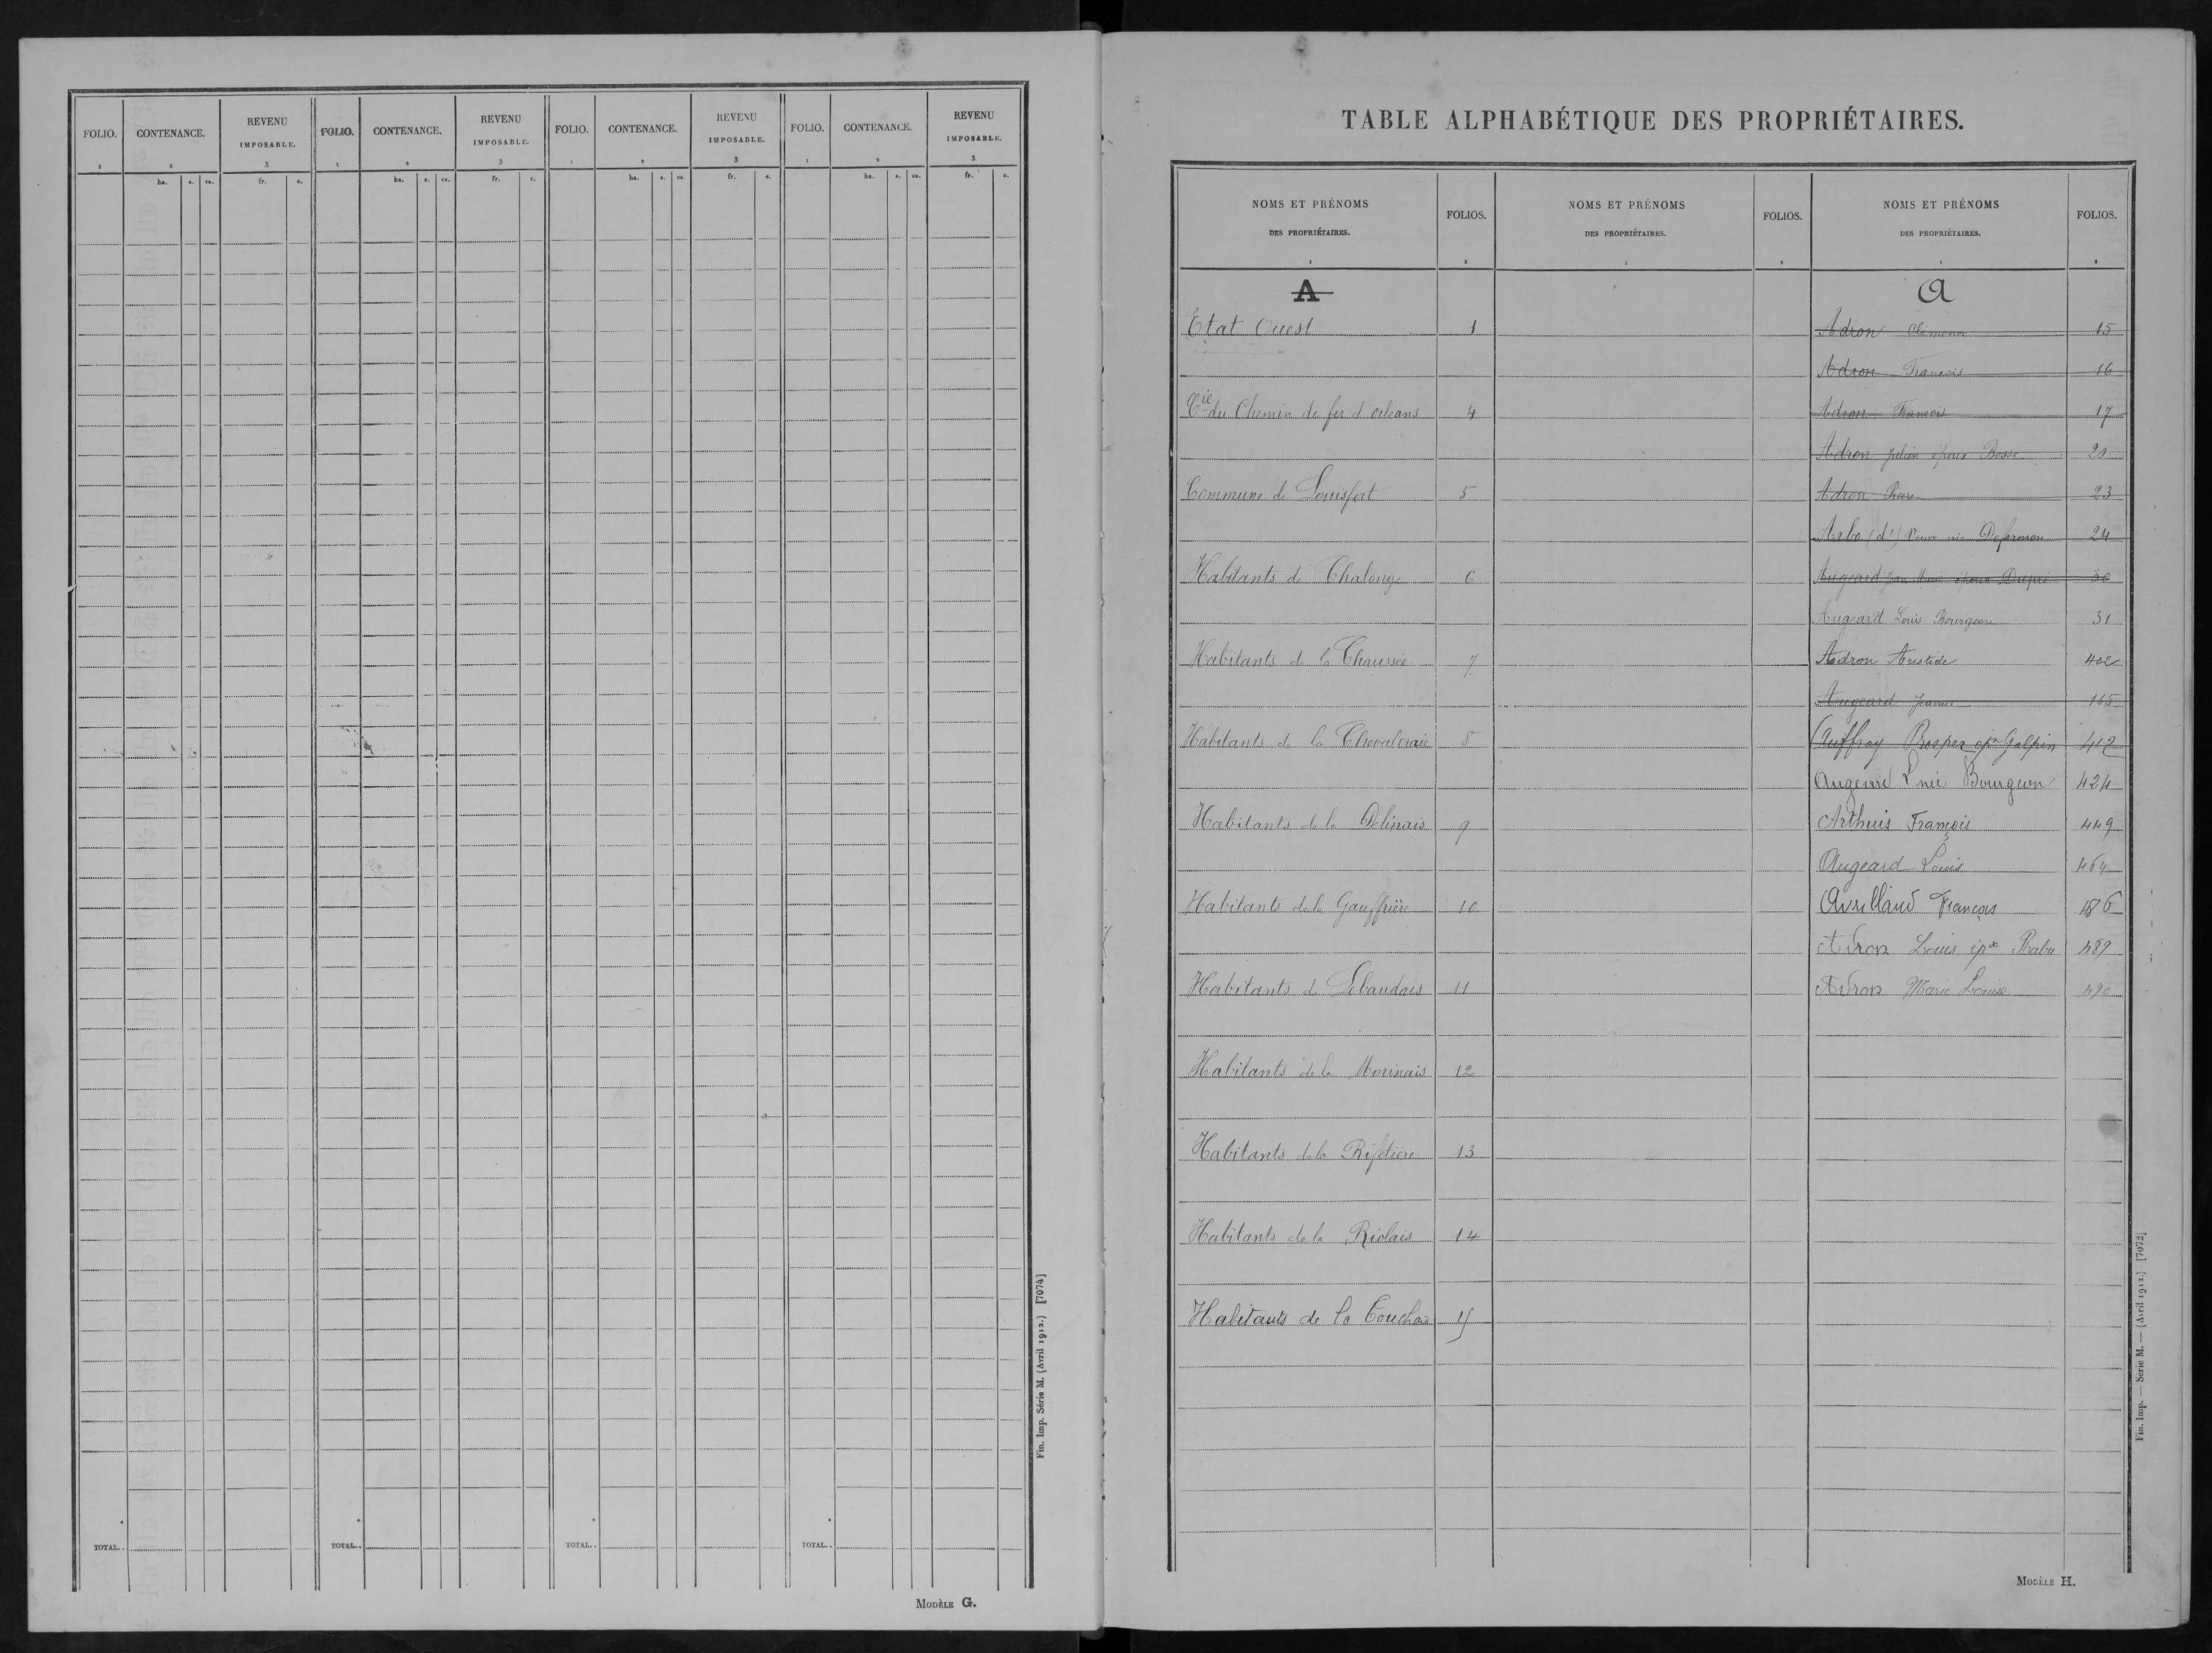 FOLIO. CONTENANCE. REVENU IMPOSABLE. FOLIO. CONTENANCE. REVENU IMPOSABLE. FOLIO. CONTENANCE. REVENU IMPOSABLE. FOLIO. CONTENANCE. REVENU IMPOSABLE.
1 2 3 1 2 3 1 2 3 1 2 3
ha. a. ca. fr. c. ha. a. ca. fr. c. ha. a. ca. fr. c. ha. a. ca. fr. c.
TOTAL.. TOTAL.. TOTAL.. TOTAL..
Fin. Imp. Série M. (Avril 1912.) [7074]
MODÈLE G.
TABLE ALPHABÉTIQUE DES PROPRIÉTAIRES.
NOMS ET PRÉNOMS DES PROPRIÉTAIRES. FOLIOS. NOMS ET PRÉNOMS DES PROPRIÉTAIRES. FOLIOS. NOMS ET PRÉNOMS DES PROPRIÉTAIRES. FOLIOS.
1 2 1 2 1 2
A
Etat Ouest 1
Cie du Chemin de fer d'orléans 4
Commune de Louisfert 5
Habitants de Chalonge 6
Habitants de la Chaussée 7
Habitants de la Chevaleraie 8
Habitants de la Delinais 9
Habitants de la Gauffrière 10
Habitants de Lebaudais 11
Habitants de la Morinais 12
Habitants de la 13
Habitants de la Riolais 14
Habitants de la
A
Adron Clémence 15
Adron François 16
Adron François 17
Adron époux Bossé 20
Adron Pierre 23
Arbo (d') Veuve née Defermon 24
Augeard Jean Marie époux Dupré 30
Augeard Louis Bourgeon 31
Adron Aristide 402
Augeard Jeanne 165
Auffray Prosper epx Galpin 412
Augeard L née Bourgeon 424
Arthuis François 449
Augeard Louis 464
Avrillaud François 486
Adron Louis epx Rabu 489
Adron Marie Louise 490
Fin. Imp. — Série M. — (Avril 1912.) [7072]
MODÈLE H.